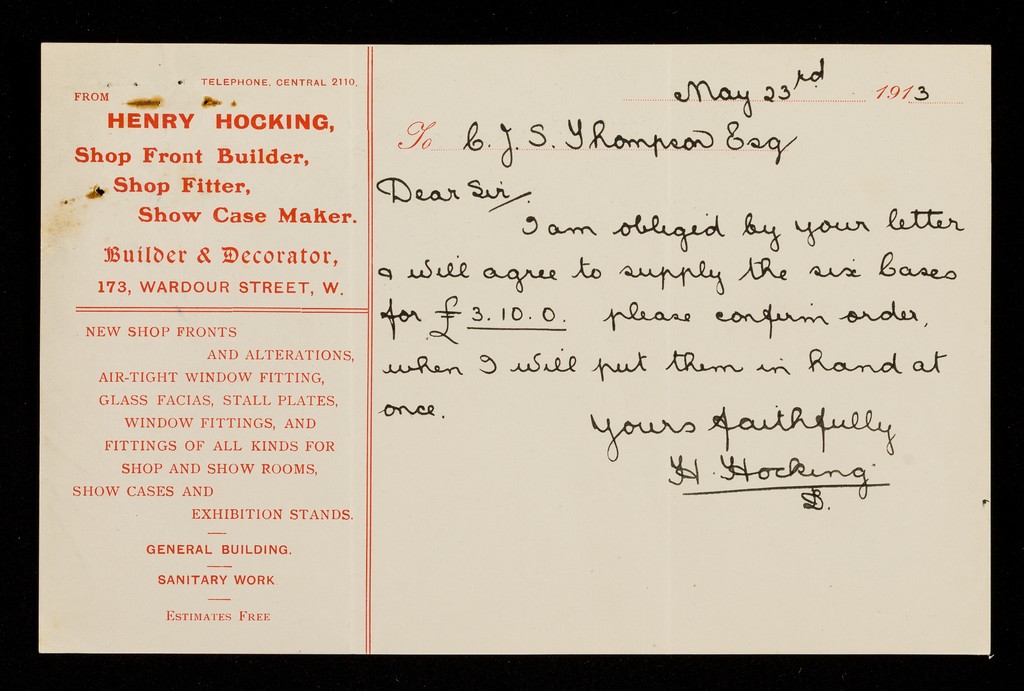 TELEPHONE. CENTRAL 2110.
FROM
HENRY HOCKING,
Shop Front Builder,
Shop Fitter,
Show Case Maker.
Builder & Decorator,
173, WARDOUR STREET, W.
NEW SHOP FRONTS
AND ALTERATIONS,
AIR-TIGHT WINDOW FITTING,
GLASS FACIAS, STALL PLATES,
WINDOW FITTINGS, AND
FITTINGS OF ALL KINDS FOR
SHOP AND SHOW ROOMS,
SHOW CASES AND
EXHIBITION STANDS.
GENERAL BUILDING.
SANITARY WORK
ESTIMATES FREE
May 23rd 1913
To C. J. S. Thompson Esq
Dear Sir
I am obliged by your letter
& will agree to supply the six Cases
for £3.10.0. please confirm order,
when I will put them in hand at
once.
Yours faithfully
H. Hocking
B.